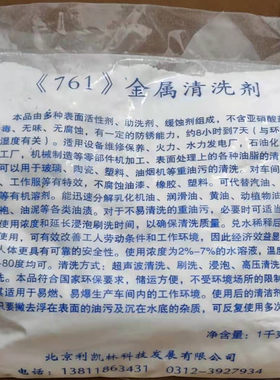 《761》金属清洗剂
本品由多种表面活性剂、助洗剂、缓蚀剂组成，不含亚硝酸
毒、无味、无腐蚀，有一定的防锈能力，约8小时到7天（与环
湿度有关）。适用设备维修保养、火力、水力发电厂，石油化
工厂，机械制造等零部件机加工、表面处理上的各种油脂的清
可以用于玻璃、陶瓷、塑料、油烟机等重油污的清洗，对车间
、工作服等有特效，不腐蚀油漆、橡胶、塑料。可代替汽油、
等有机溶剂。能迅速分解乳化机油、润滑油、黄油、动植物油
泡、油泥等各类油渍。对于不易清洗的重油污，必要时可适当
使用浓度和延长浸泡刷洗时间，以确保清洗质量。兑水稀释后
使用，可有效改善工人劳动条件和工作环境，因此经济效益显
人体更具有可靠的安全性。使用浓度为2%—7%的水溶液，温度
-80度均可。清洗方式：超声波清洗、刷洗、浸泡、高压清洗
。本品符合国家环保要求，储运方便，不受环境场所的限制
其适用于易燃、易爆生产车间内的工作环境。使用后的清洗
只要撇去浮在表面的油污及沉在水底的杂质，可反复使用多次
净含量：1千克
北京利凯林科技发展有限公司
电话：13811863431 0312-3927934